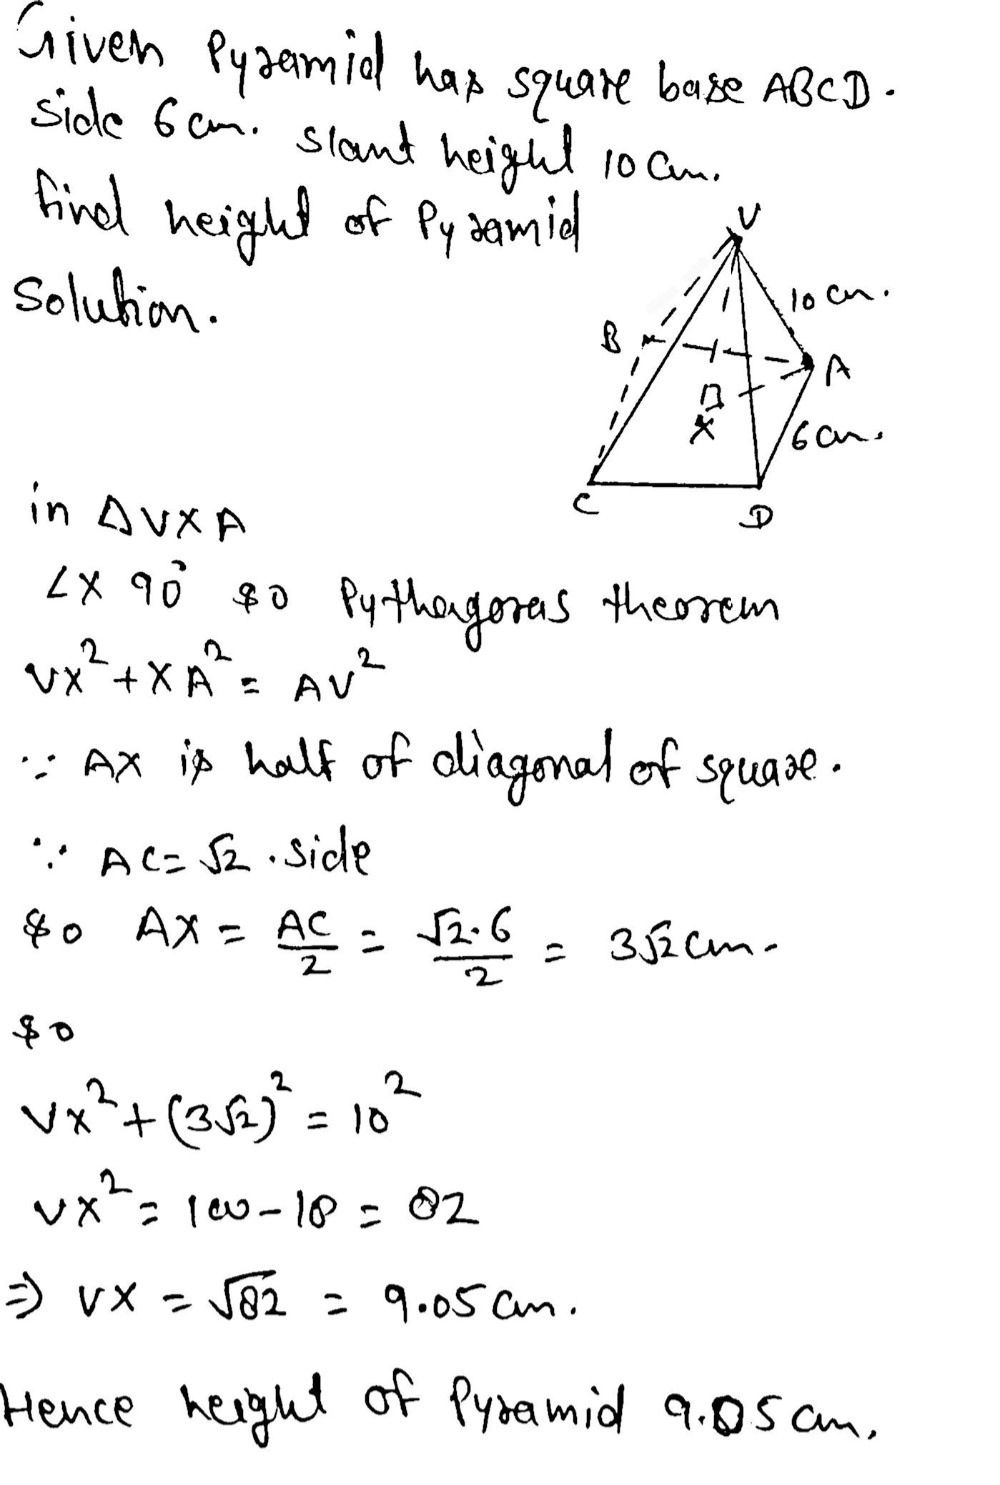 Given Pyramid has square base ABCD.
side 6 cm. slant height 10 cm.
find height of Pyramid
Solution.
V
10 cm.
B
A
X
6 cm.
C
D
in ΔVXA
∠X 90° so Pythagoras theorem
VX² + XA² = AV²
∵ AX is half of diagonal of square.
∵ AC = √2 . side
so AX = AC/2 = √2·6/2 = 3√2 cm.
so
VX² + (3√2)² = 10²
VX² = 100 - 18 = 82
⇒ VX = √82 = 9.05 cm.
Hence height of Pyramid 9.05 cm.